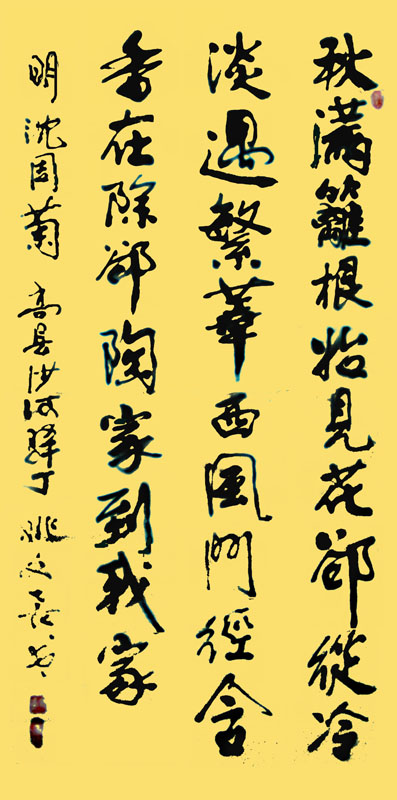 秋滿籬根始見花卻從冷
淡遇繁華西風門徑含
香在除卻陶家到我家
明沈周菊 高县沙河驿丁